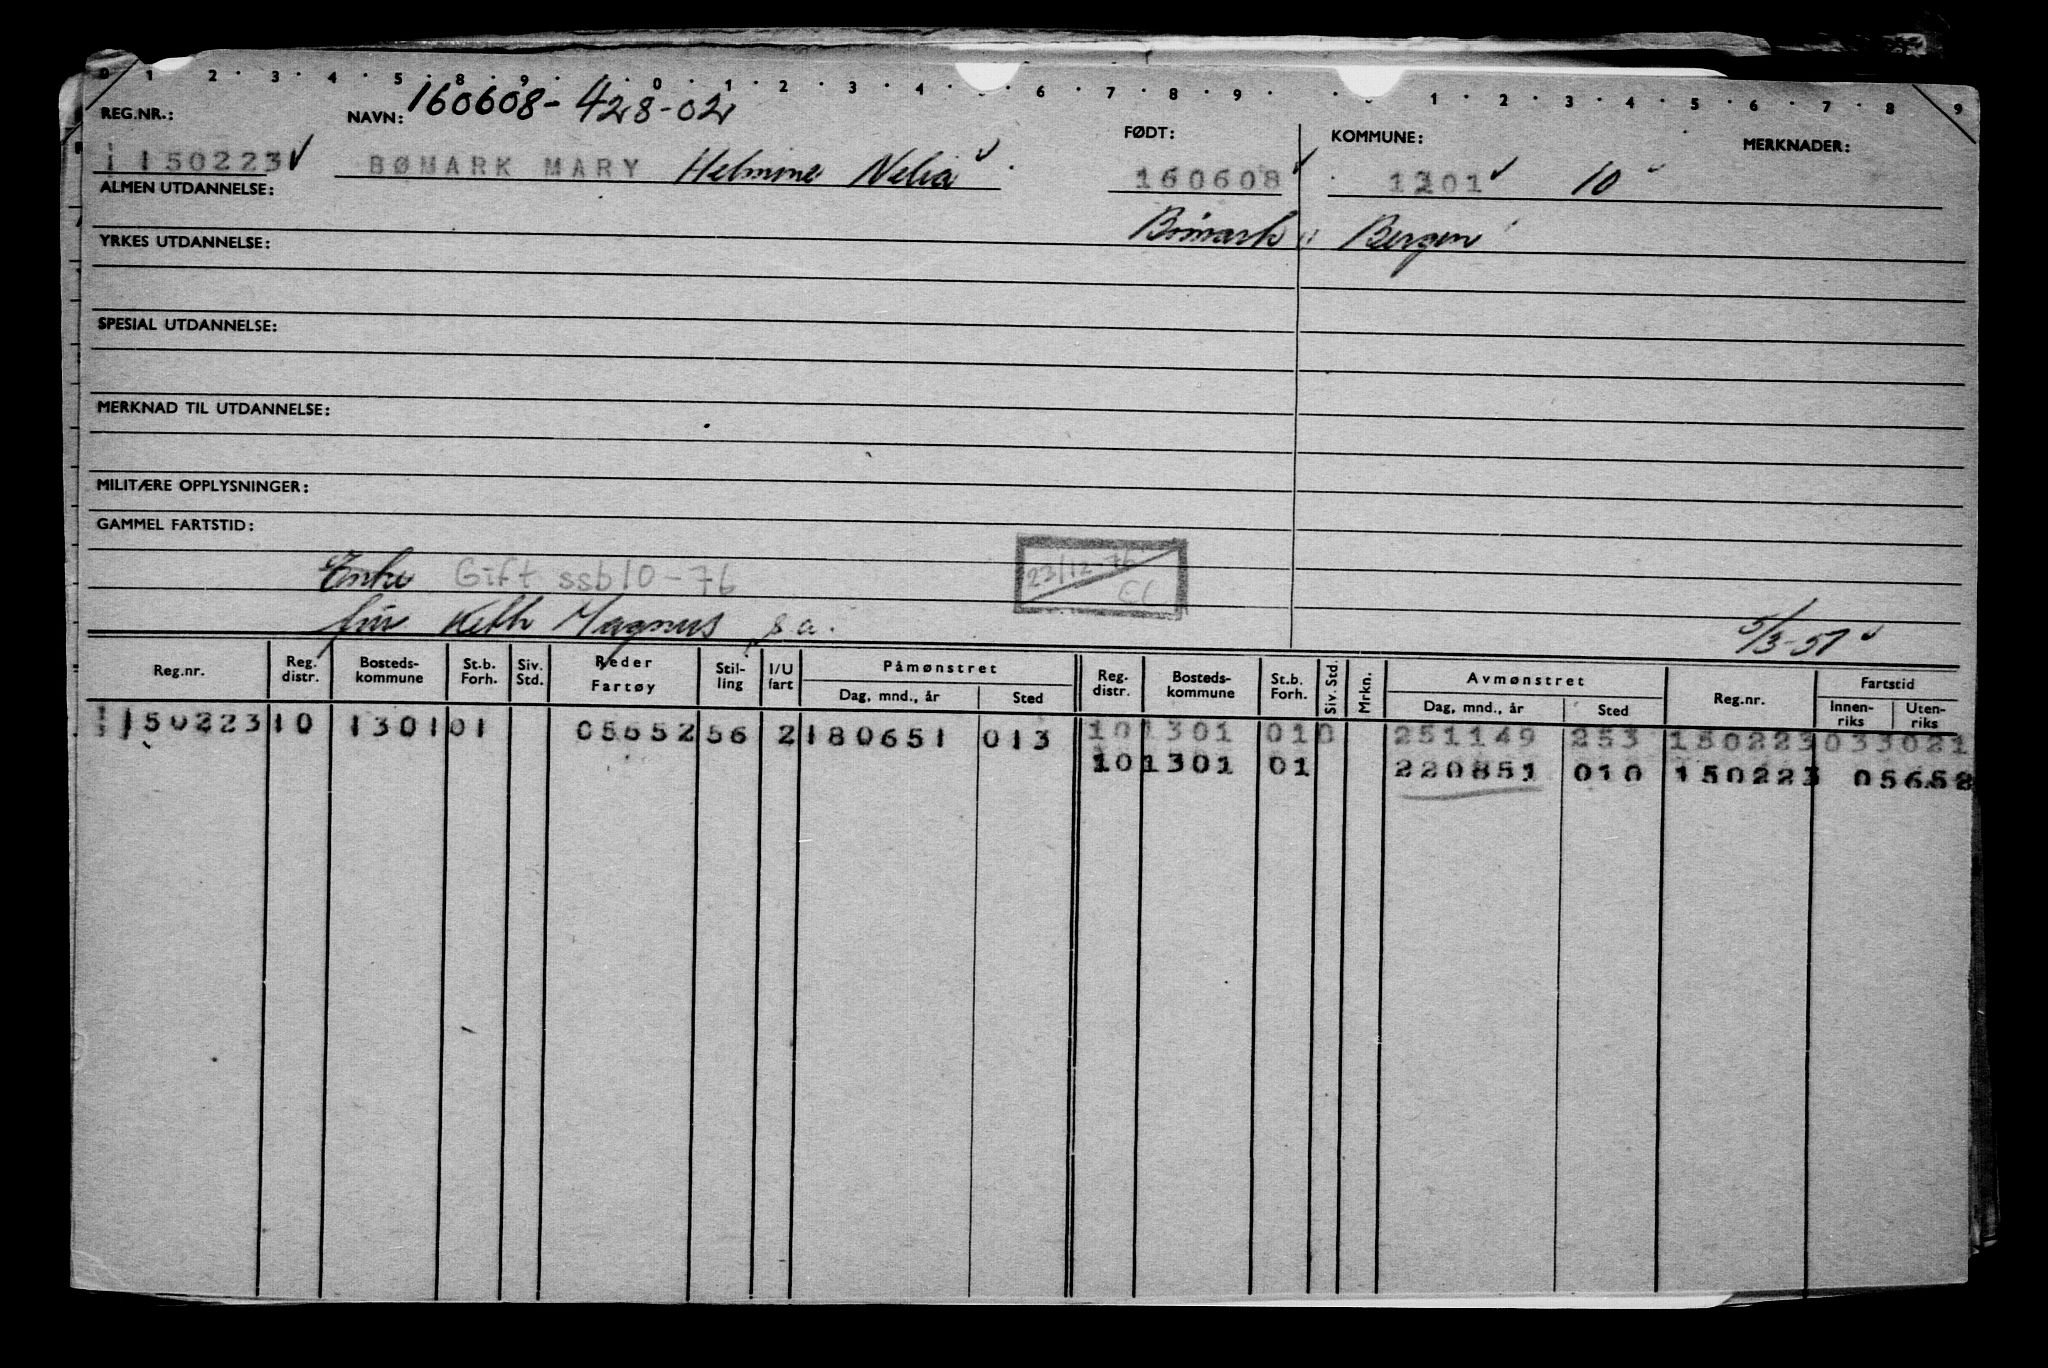 0 1 2 3 4 5 8 9 0 1 2 3 4 5 6 7 8 9 1 2 3 4 5 6 7 8 9
160608-428-02
REG.NR.: NAVN: FØDT: KOMMUNE: MERKNADER:
1150223 BØMARK MARY Helmine Nelia 160608 1201 10
ALMEN UTDANNELSE:
Bømark Bergen
YRKES UTDANNELSE:
SPESIAL UTDANNELSE:
MERKNAD TIL UTDANNELSE:
MILITÆRE OPPLYSNINGER:
GAMMEL FARTSTID:
Enke Gift ssb10-76 23/12-76
Magnus s a. 5/3-51
Reg.nr. Reg. distr. Bosteds-kommune St.b. Forh. Siv. Std. Reder Fartøy Stil-ling I/U fart Påmønstret Dag, mnd., år Sted Reg. distr. Bosteds-kommune St.b. Forh. Siv. Std. Mrkn. Avmønstret Dag, mnd., år Sted Reg.nr. Fartstid Innen-riks Uten-riks
1150223 10 1301 01 05652 56 2 180651 013 10 1301 01 0 251149 253 150223 033021
10 1301 01 220851 010 150223 05652